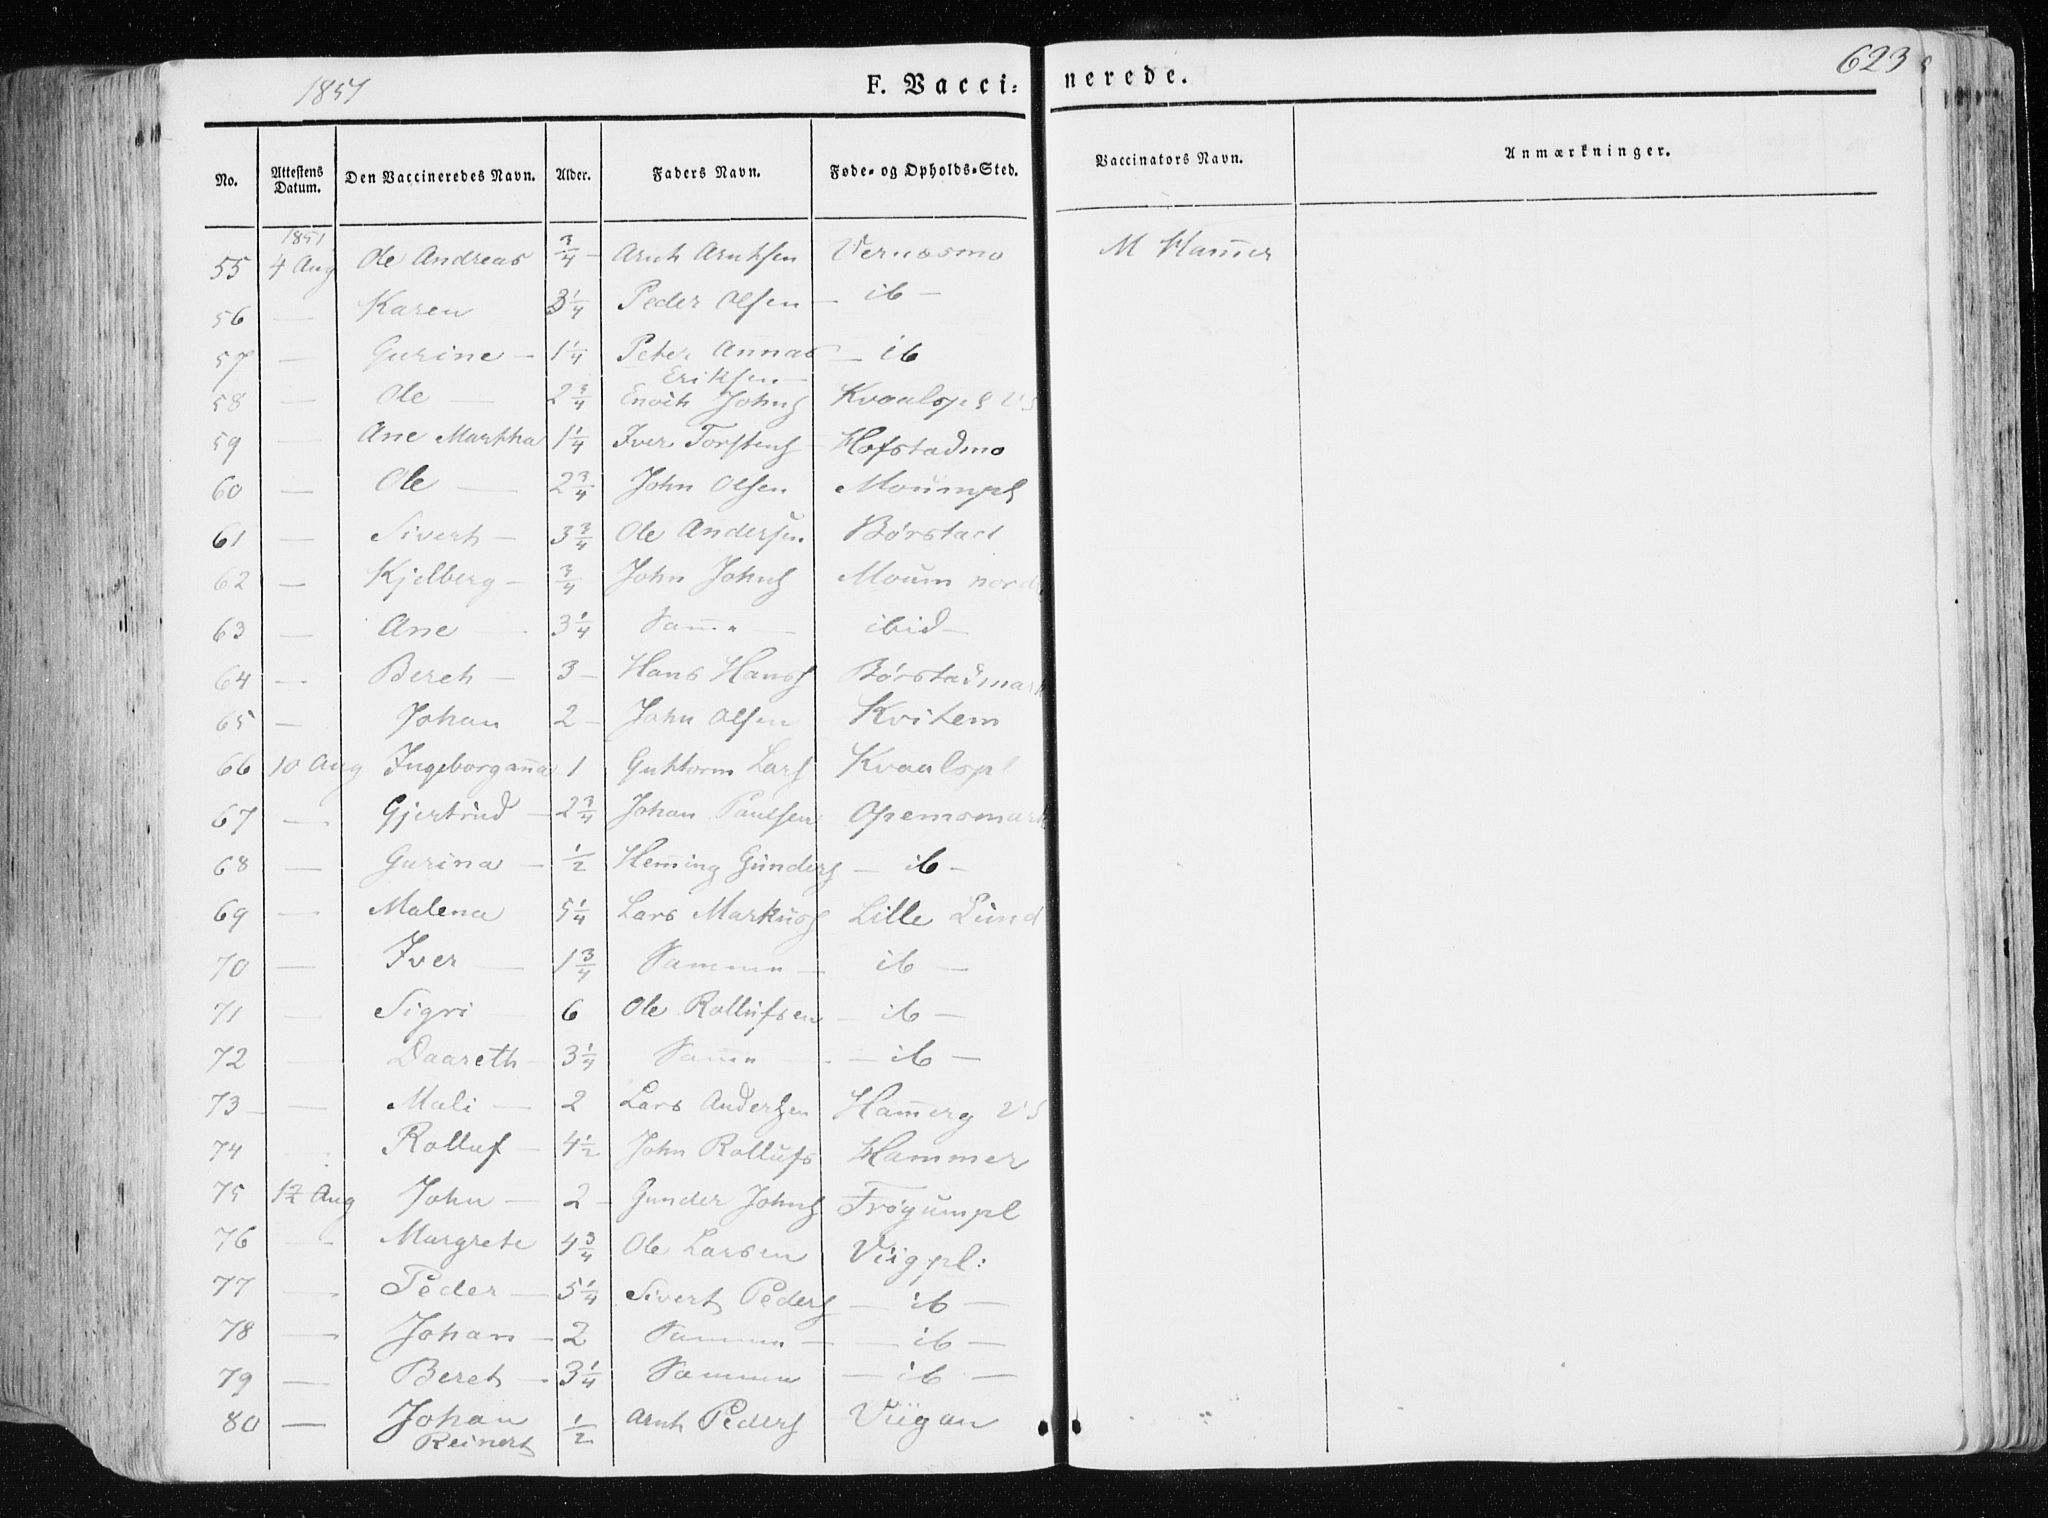 1851
F. Vacci=
nerede.
623
No. Attestens Datum. Den Vaccineredes Navn. Alder. Faders Navn. Føde- og Opholds-Sted. Vaccinators Navn. Anmærkninger.
1851
55 4 Aug Ole Andreas 3/4 - Arnt Arntsen Vernæsmo M Ham̄er
56 — Karen 3 1/4 Peder Olsen — ib —
57 — Gurine — 1 1/4 Peter Annas — ib
Eriksen —
58 — Ole — 2 3/4 Enoch Johns Kvaalspl VS
59 — Ane Martha 1 1/4 Iver Torstens Hofstadmo
60 — Ole — 2 3/4 John Olsen Moumpl
61 — Sivert — 3 3/4 Ole Andersen Børstad
62 — Kjelberg — 3/4 John Johns Moum nord
63 — Ane — 3 1/4 Sam̄e — ibid —
64 — Beret — 3 — Hans Hans Børstadmark
65 — Johan 2 — John Olsen Kvitem
66 10 Aug Ingeborgan̄a 1 Guttorm Lars Kvaalspl
67 — Gjertrud — 2 3/4 Johan Paulsen Opemsmark
68 — Gurina — 1/2 Hem̄ing Gunders — ib —
69 — Malena 5 1/4 Lars Markus Lille Lund
70 — Iver — 1 3/4 Samme — ib —
71 — Sigri — 6 Ole Rollufsen — ib —
72 — Daareth — 3 1/4 Sam̄e — — ib —
73 — Mali — 2 Lars Andersen Ham̄erg VS
74 — Rolluf — 4 1/2 John Rollufs Hammer
75 12 Aug John — 2 — Gunder Johns Frøyumpl
76 — Margrete 4 3/4 Ole Larsen Viigpl:
77 — Peder — 5 1/4 Sivert Peders — ib —
78 — Johan — 2 Samme — — ib —
79 — Beret — 3 1/4 Samme — ib —
80 — Johan 1/2 Arnt Peders Viigan
Reinert